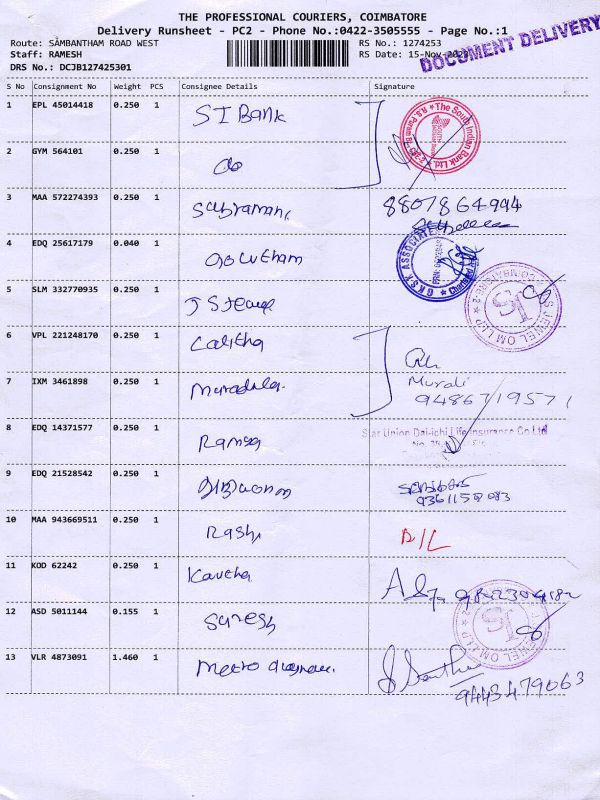 THE PROFESSIONAL COURIERS, COIMBATORE
Delivery Runsheet - PC2 - Phone No.:0422-3505555 - Page No.:1
Route: SAMBANTHAM ROAD WEST RS No.: 1274253
Staff: RAMESH RS Date: 15-Nov-
DRS No.: DCJB127425301
DOCUMENT DELIVERY
S No Consignment No Weight PCS Consignee Details Signature
1 EPL 45014418 0.250 1 SI Bank
The South Indian Bank Ltd.
2 GYM 564101 0.250 1 do
3 MAA 572274393 0.250 1 Subramani 8807864994
4 EDQ 25617179 0.040 1 Goutham
GKSK ASSOCIATES
5 SLM 332770935 0.250 1
JEWEL OM LLP
COIMBATORE-2
SJ
6 VPL 221248170 0.250 1 Lalitha
7 IXM 3461898 0.250 1 Murali
9486719571
8 EDQ 14371577 0.250 1
Star Union Dai-ichi Life Insurance Co Ltd
9 EDQ 21528542 0.250 1
10 MAA 943669511 0.250 1 Rashi D/L
11 KOD 62242 0.250 1 Kavitha
12 ASD 5011144 0.155 1 Suresh
JEWEL OM LLP
SJ
13 VLR 4873091 1.460 1 Metro
9443479063